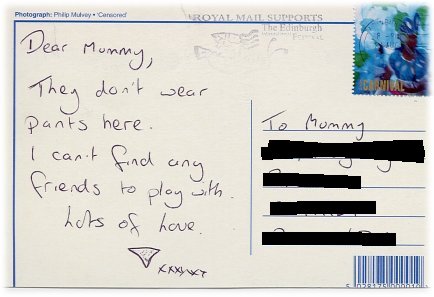 Photograph: Philip Mulvey • 'Censored'
ROYAL MAIL SUPPORTS
The Edinburgh
CARNIVAL
Dear Mummy,
They don't wear
pants here.
I can't find any
friends to play with.
Lots of Love.
xxxxxx
To Mummy